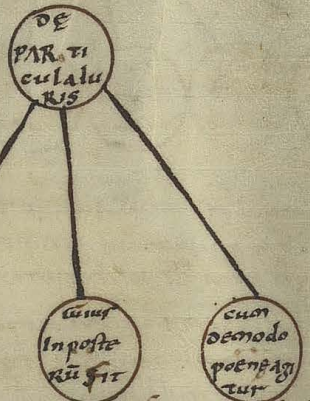 DE
PAR TI
culaIu
RIS
Cuius
In poste
Rū fit
cum
de modo
poene agi
tur